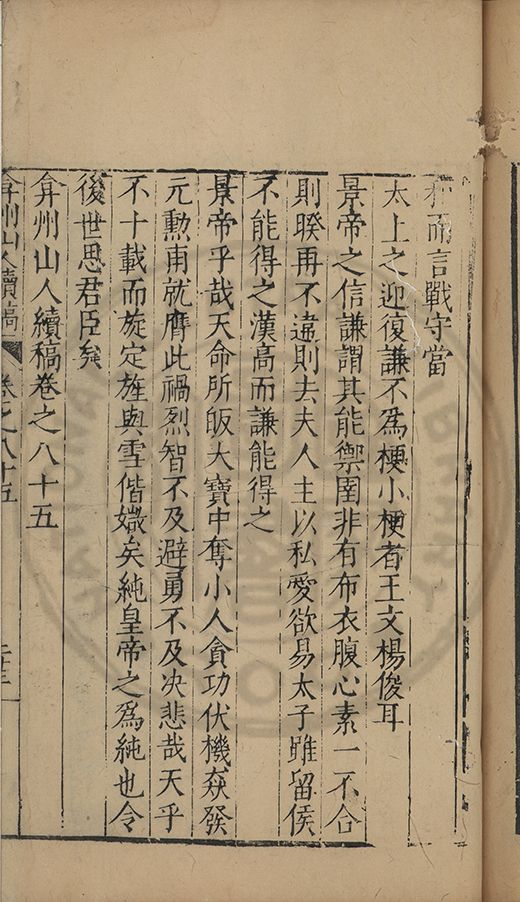 和而言戰守當
太上之迎復謙不為梗小梗者王文楊俊耳
景帝之信謙謂其能禦圉非有布衣腹心素一不合
則暌再不違則去夫人主以私愛欲易太子雖留侯
不能得之漢高而謙能得之
景帝乎哉天命所皈大寶中奪小人貪功伏機猋發
元勳甫就膺此禍烈智不及避勇不及决悲哉天乎
不十載而旋定旌與雪偕媺矣純皇帝之為純也令
後世思君臣矣
弇州山人續稿卷之八十五
弇州山人續稿 卷之八十五